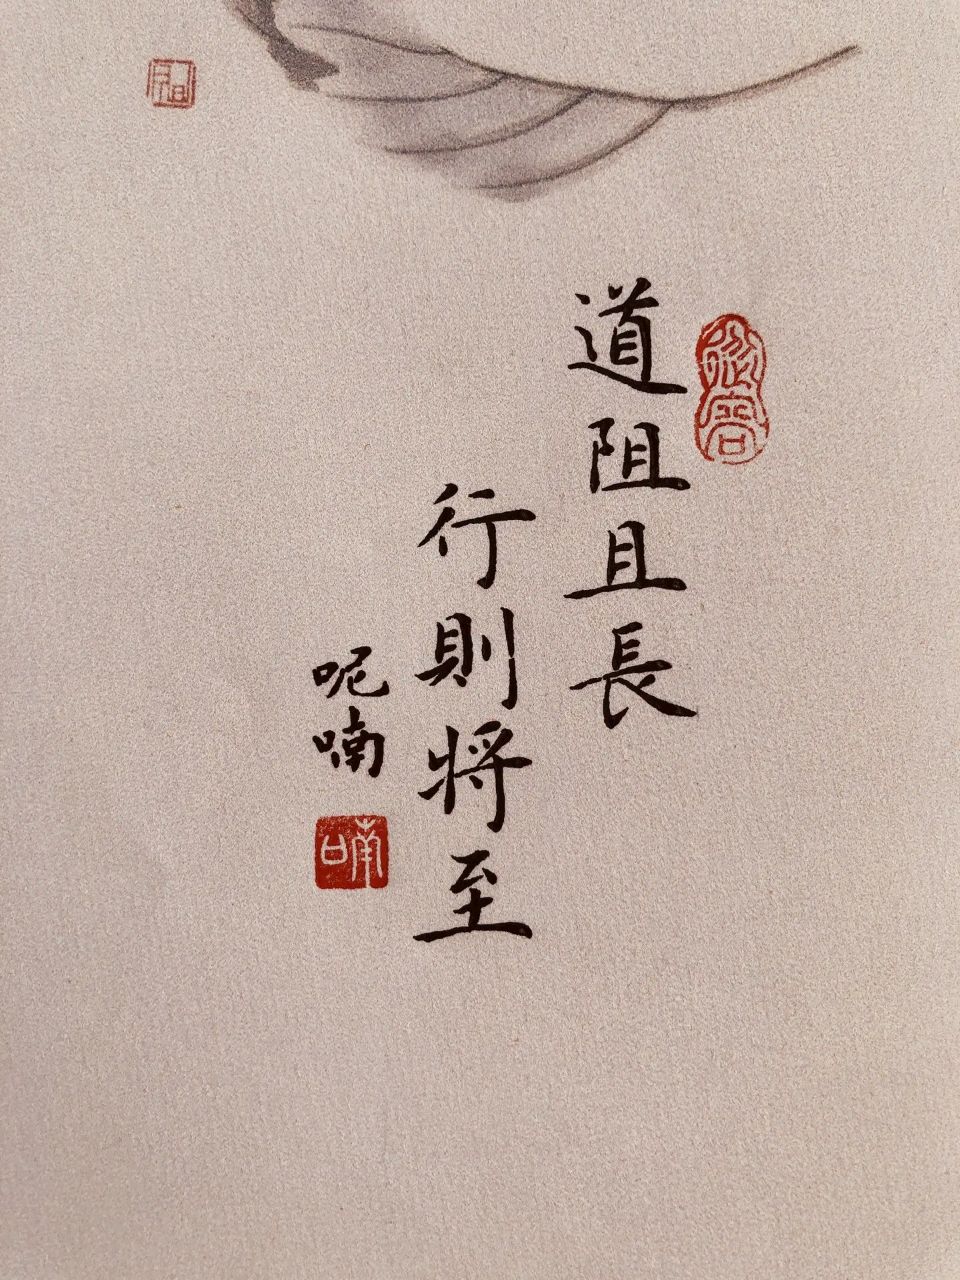 道阻且長
行則將至
呢喃
喃